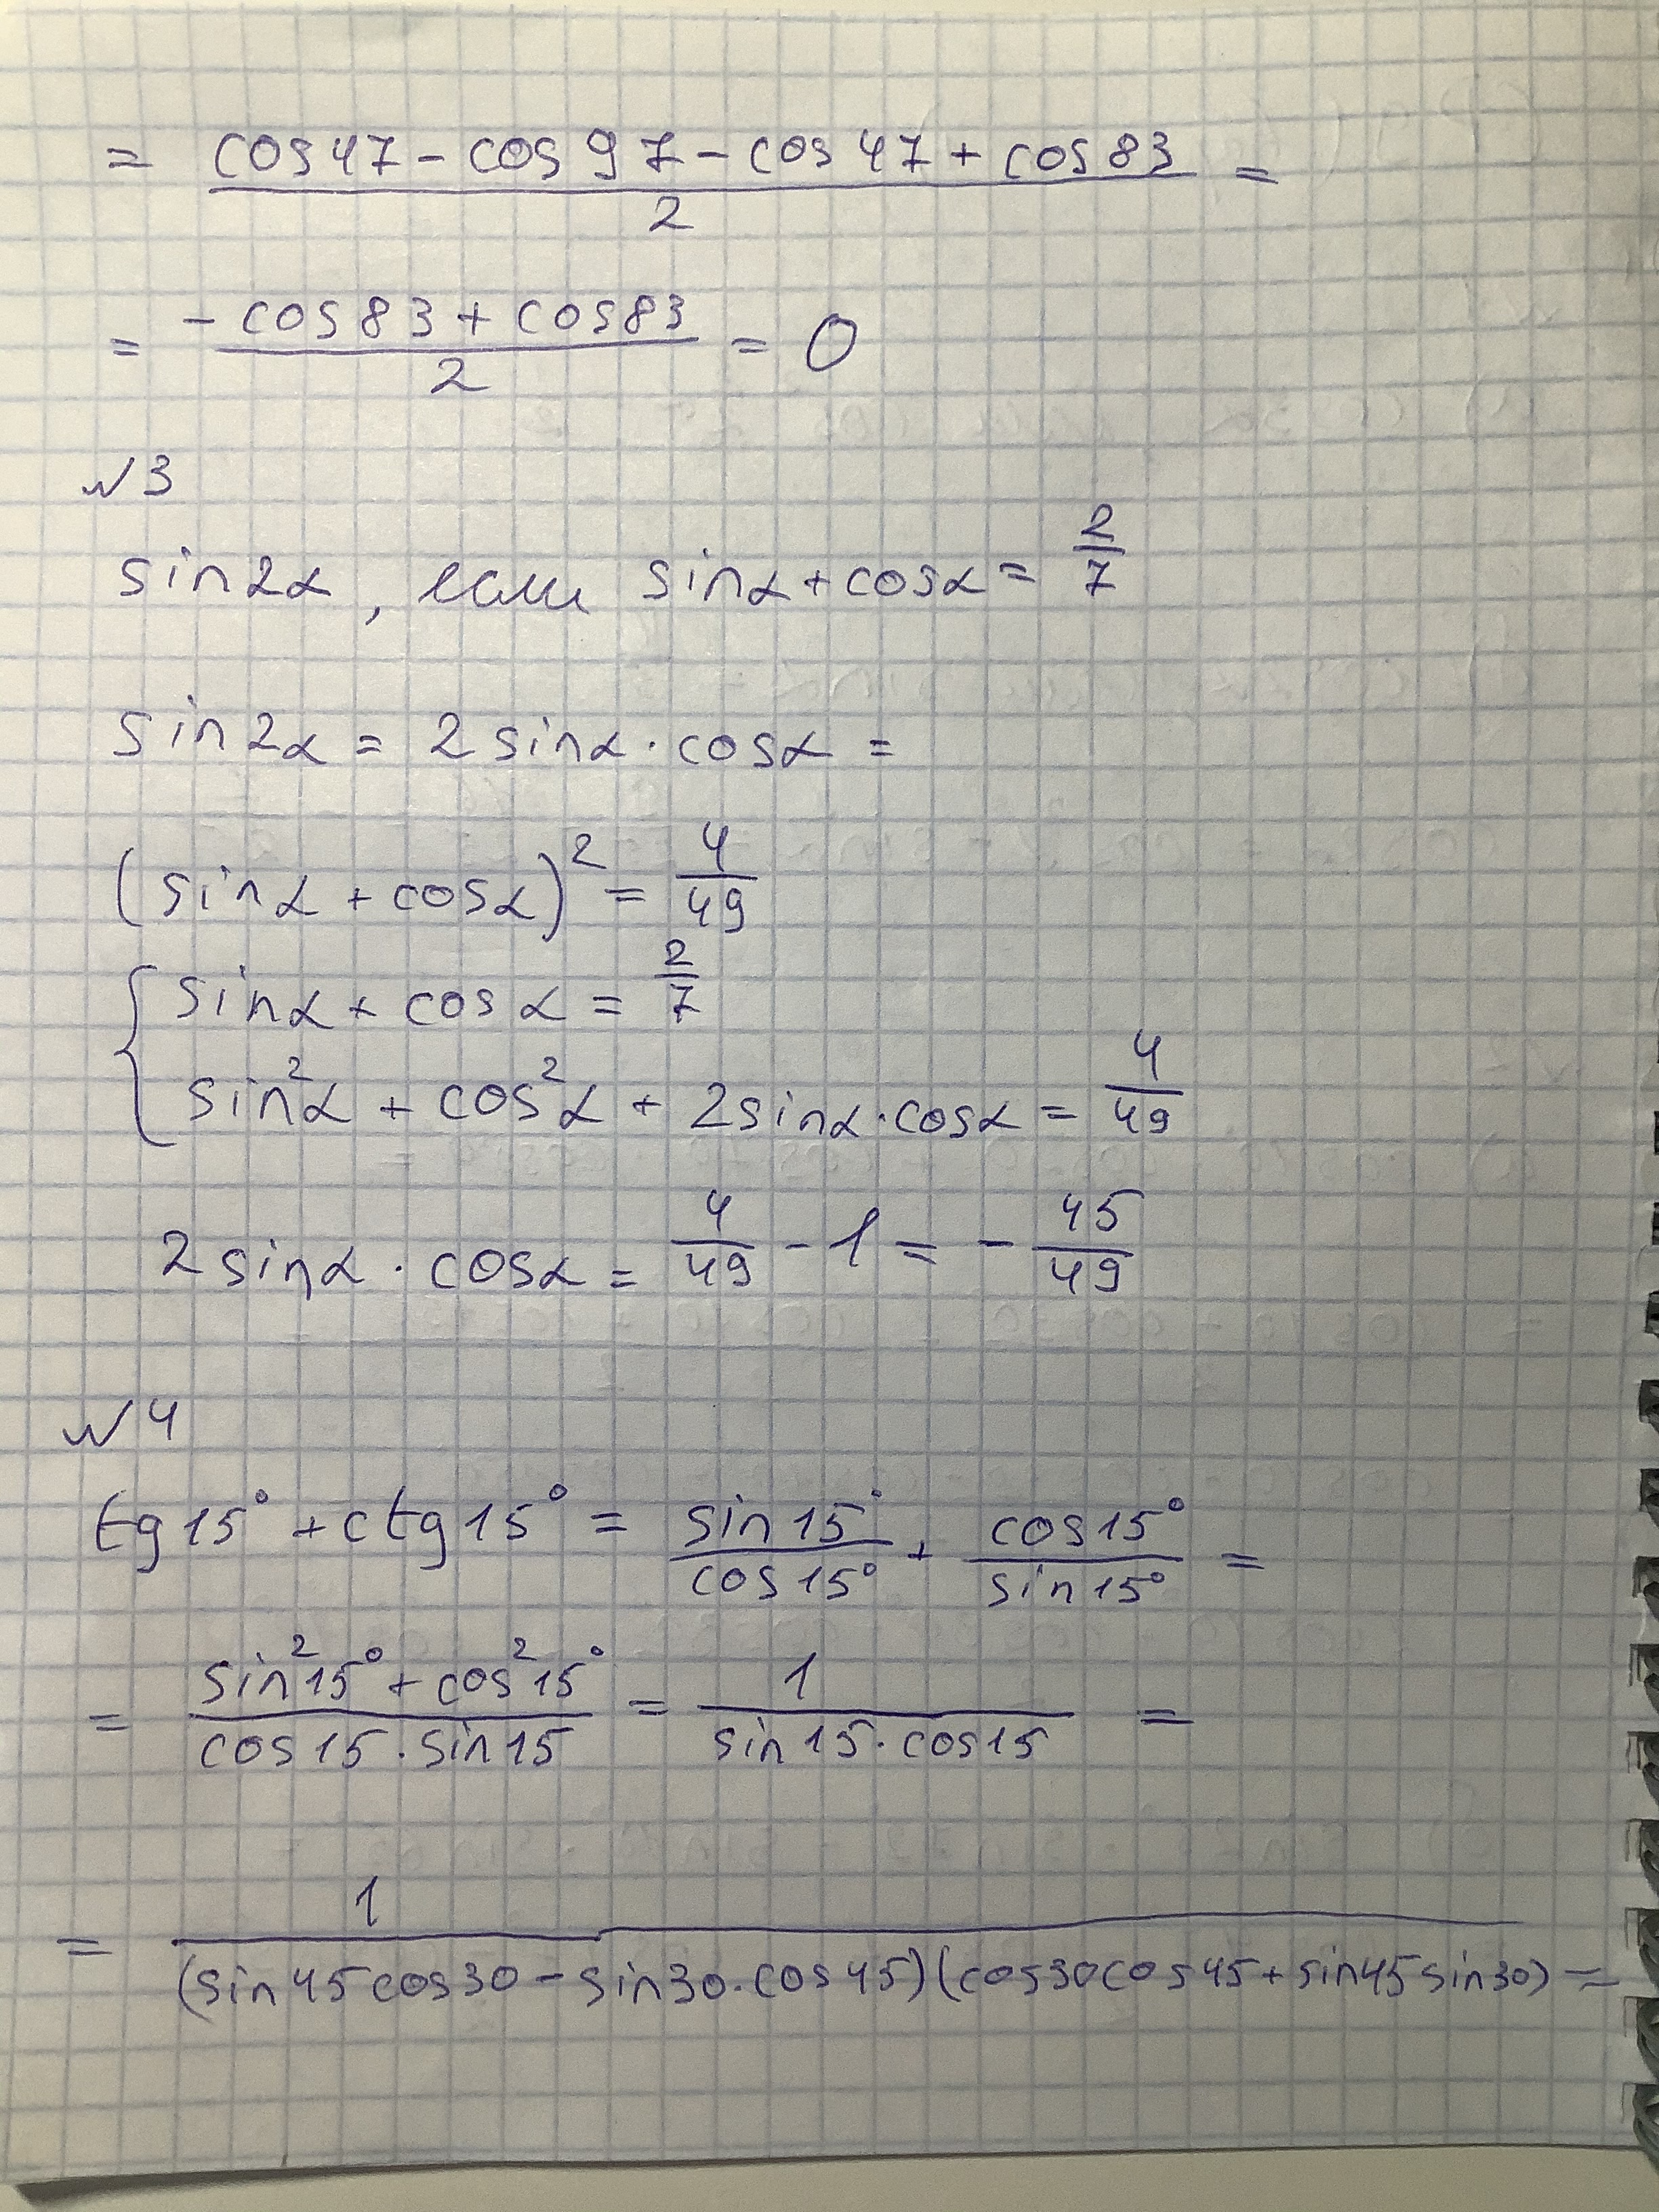 = (cos47 - cos97 - cos47 + cos83)/2 =
= (-cos83 + cos83)/2 = 0
№3
sin2α, если sinα + cosα = 2/7
sin2α = 2sinα · cosα =
(sinα + cosα)² = 4/49
{ sinα + cosα = 2/7
sin²α + cos²α + 2sinα · cosα = 4/49
2sinα · cosα = 4/49 - 1 = - 45/49
№4
tg15° + ctg15° = sin15°/cos15° + cos15°/sin15° =
= (sin²15° + cos²15°)/(cos15 · sin15) = 1/(sin15 · cos15) =
= 1/((sin45cos30 - sin30 · cos45)(cos30cos45 + sin45sin30)) =